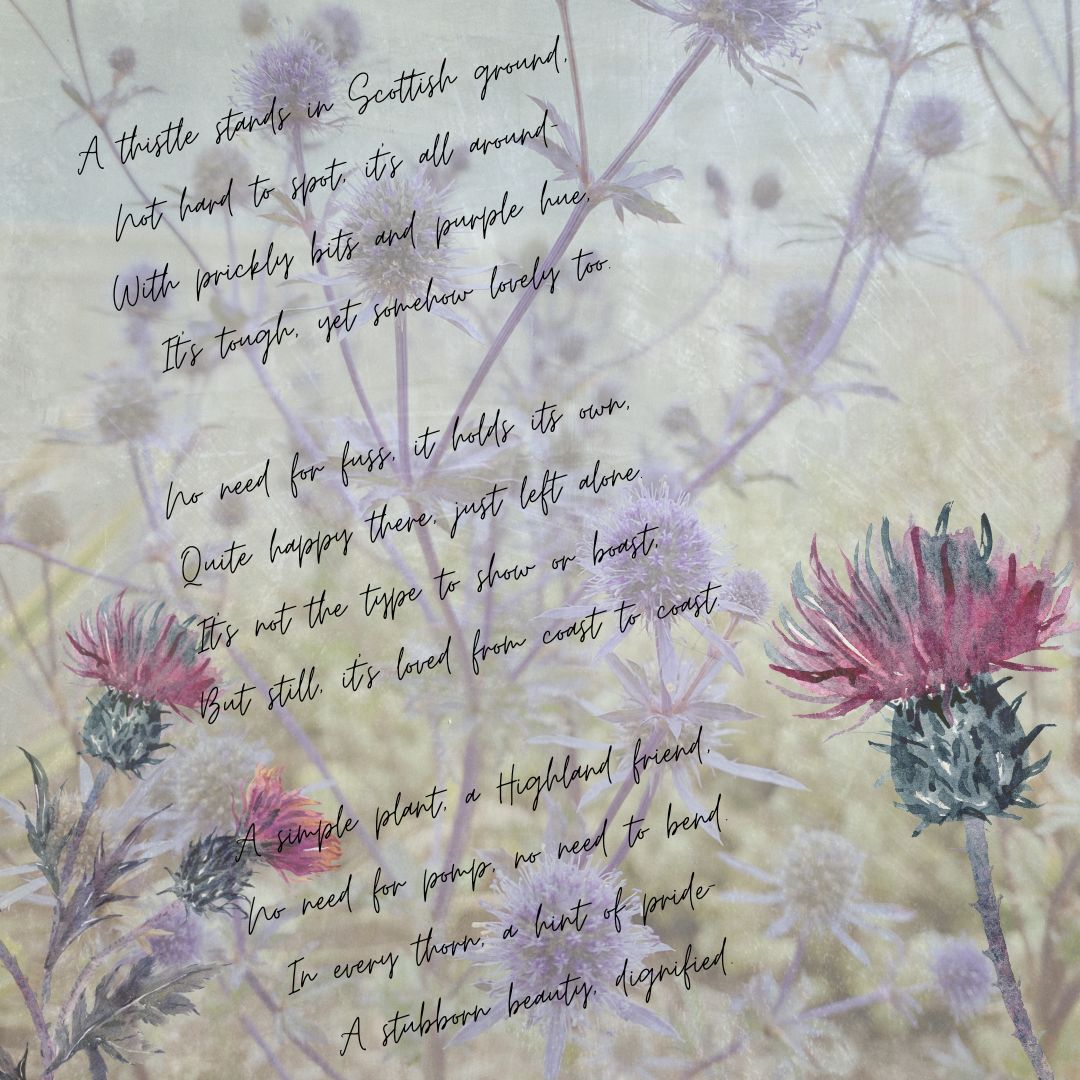 A thistle stands in Scottish ground,
Not hard to spot, it's all around-
With prickly bits and purple hue,
It's tough, yet somehow lovely too.
No need for fuss, it holds its own,
Quite happy there, just left alone.
It's not the type to show or boast,
But still, it's loved from coast to coast.
A simple plant, a Highland friend,
No need for pomp, no need to bend.
In every thorn, a hint of pride-
A stubborn beauty, dignified.